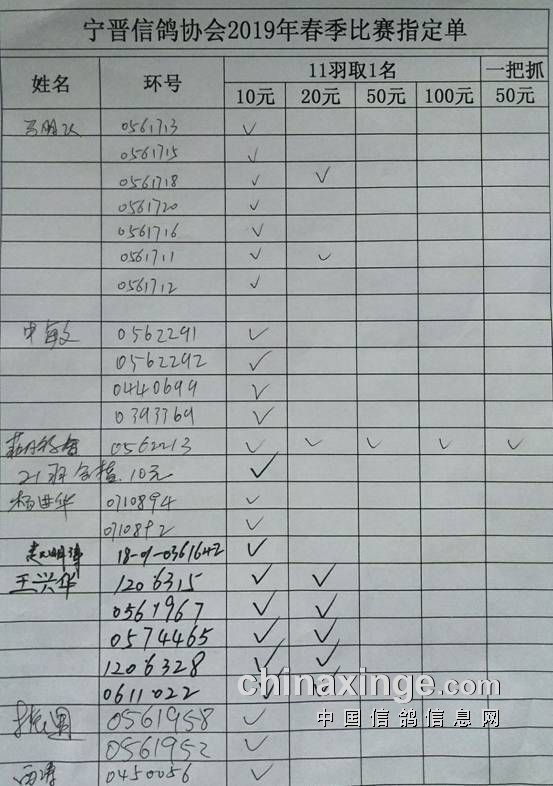 宁晋信鸽协会2019年春季比赛指定单
姓名 环号 11羽取1名 一把抓
10元 20元 50元 100元 50元
0561713 ✓
0561715 ✓
0561718 ✓ ✓
0561720 ✓
0561716 ✓
0561711 ✓ ✓
0561712 ✓
0562291 ✓
0562292 ✓
0440699 ✓
0393769 ✓
0562213 ✓ ✓ ✓ ✓ ✓
21羽 10元 ✓
杨进华 0710894 ✓
0710892 ✓
18-01-0361642 ✓
王兴华 1206315 ✓ ✓
0561967 ✓ ✓
0574465 ✓ ✓
1206328 ✓ ✓
0611022 ✓ ✓
chinaxinge.com
0561958 ✓
中国信鸽信息网
0561952 ✓
0450056 ✓